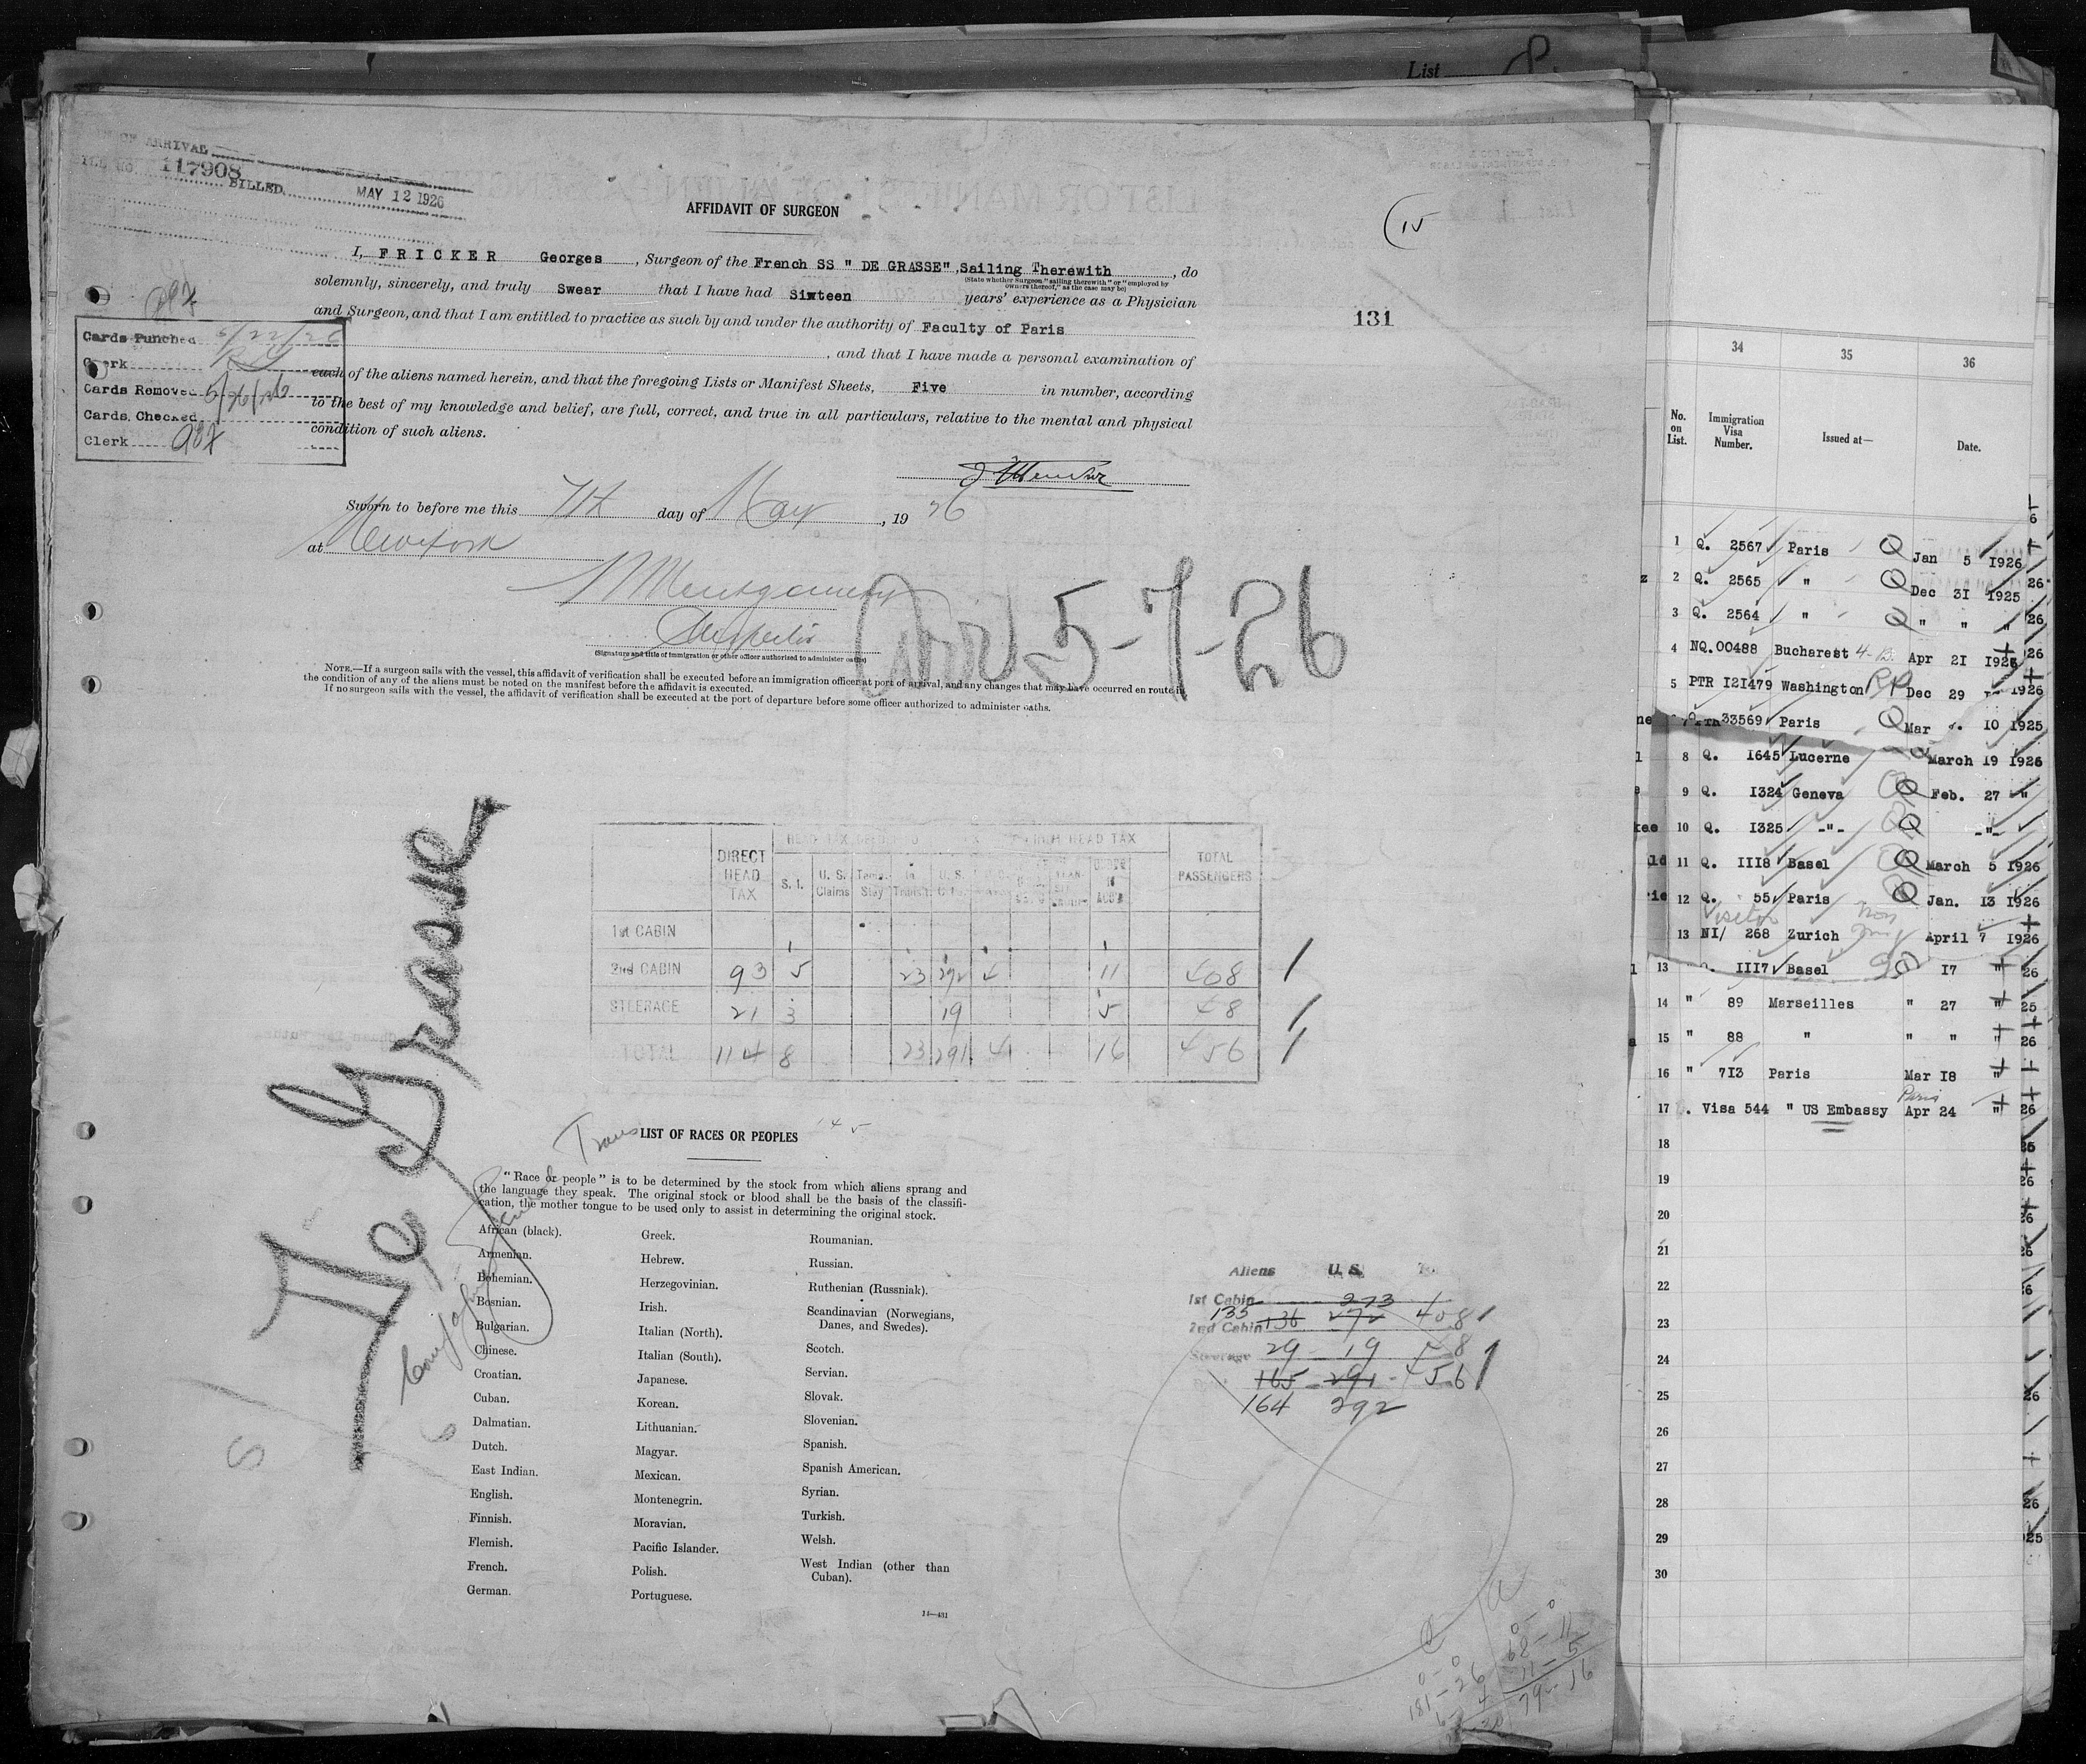 List
ARRIVAL
117908
BILLED
MAY 12 1926
AFFIDAVIT OF SURGEON
I, FRICKER Georges, Surgeon of the French SS " DE GRASSE", Sailing Therewith, do
(State whether Surgeon "sailing therewith" or "employed by
owners thereof," as the case may be)
solemnly, sincerely, and truly Swear that I have had Sixteen years' experience as a Physician
and Surgeon, and that I am entitled to practice as such by and under the authority of Faculty of Paris
, and that I have made a personal examination of
each of the aliens named herein, and that the foregoing Lists or Manifest Sheets, Five in number, according
to the best of my knowledge and belief, are full, correct, and true in all particulars, relative to the mental and physical
condition of such aliens.
131
Cards Punched 5/22/26
Clerk
Cards Removed 5/26/26
Cards Checked
Clerk
Sworn to before me this 7th day of May, 19 26
at New York
Montgomery
Inspector
(Signature and title of immigration or other officer authorized to administer oaths)
Arr 5-7-26
NOTE.—If a surgeon sails with the vessel, this affidavit of verification shall be executed before an immigration officer at port of arrival, and any changes that may have occurred en route in
the condition of any of the aliens must be noted on the manifest before the affidavit is executed.
If no surgeon sails with the vessel, the affidavit of verification shall be executed at the port of departure before some officer authorized to administer oaths.
De Grasse
DIRECT HEAD TAX
HEAD TAX
S. I.
U. S. Claims
Temp. Stay
In Transit
U. S.
TOTAL PASSENGERS
1st CABIN
2nd CABIN 93 5 23 292 4 11 408
STEERAGE 21 3 19 5 48
TOTAL 114 8 23 291 4 16 456
Trans 145
LIST OF RACES OR PEOPLES
"Race or people" is to be determined by the stock from which aliens sprang and
the language they speak. The original stock or blood shall be the basis of the classifi-
cation, the mother tongue to be used only to assist in determining the original stock.
African (black).
Armenian.
Bohemian.
Bosnian.
Bulgarian.
Chinese.
Croatian.
Cuban.
Dalmatian.
Dutch.
East Indian.
English.
Finnish.
Flemish.
French.
German.
Greek.
Hebrew.
Herzegovinian.
Irish.
Italian (North).
Italian (South).
Japanese.
Korean.
Lithuanian.
Magyar.
Mexican.
Montenegrin.
Moravian.
Pacific Islander.
Polish.
Portuguese.
Roumanian.
Russian.
Ruthenian (Russniak).
Scandinavian (Norwegians,
Danes, and Swedes).
Scotch.
Servian.
Slovak.
Slovenian.
Spanish.
Spanish American.
Syrian.
Turkish.
Welsh.
West Indian (other than
Cuban).
14—431
Aliens U. S.
1st Cabin 273
135
2nd Cabin 136 272 408
Steerage 29 19 48
165 291 456
164 292
0-0
181-26
0-0
68-11
11-5
79-16
34 35 36
No. on List.
Immigration Visa Number.
Issued at—
Date.
1 Q. 2567 Paris Q Jan 5 1926
2 Q. 2565 " Q Dec 31 1925
3 Q. 2564 " Q " " "
4 NQ.00488 Bucharest Apr 21 1926
5 PTR 121479 Washington RP Dec 29 1926
33569 Paris Q Mar 10 1925
8 Q. 1645 Lucerne March 19 1926
9 Q. 1324 Geneva Q Feb. 27 "
10 Q. 1325 -"- Q -"-
11 Q. 1118 Basel Q March 5 1926
12 Q. 55 Paris Q Jan. 13 1926
Visitor
13 NI/ 268 Zurich April 7 1926
13 1117 Basel 17 "
14 " 89 Marseilles " 27 "
15 " 88 " " " "
16 " 713 Paris Mar 18 "
Paris
17 . Visa 544 " US Embassy Apr 24 "
18
19
20
21
22
23
24
25
26
27
28
29
30